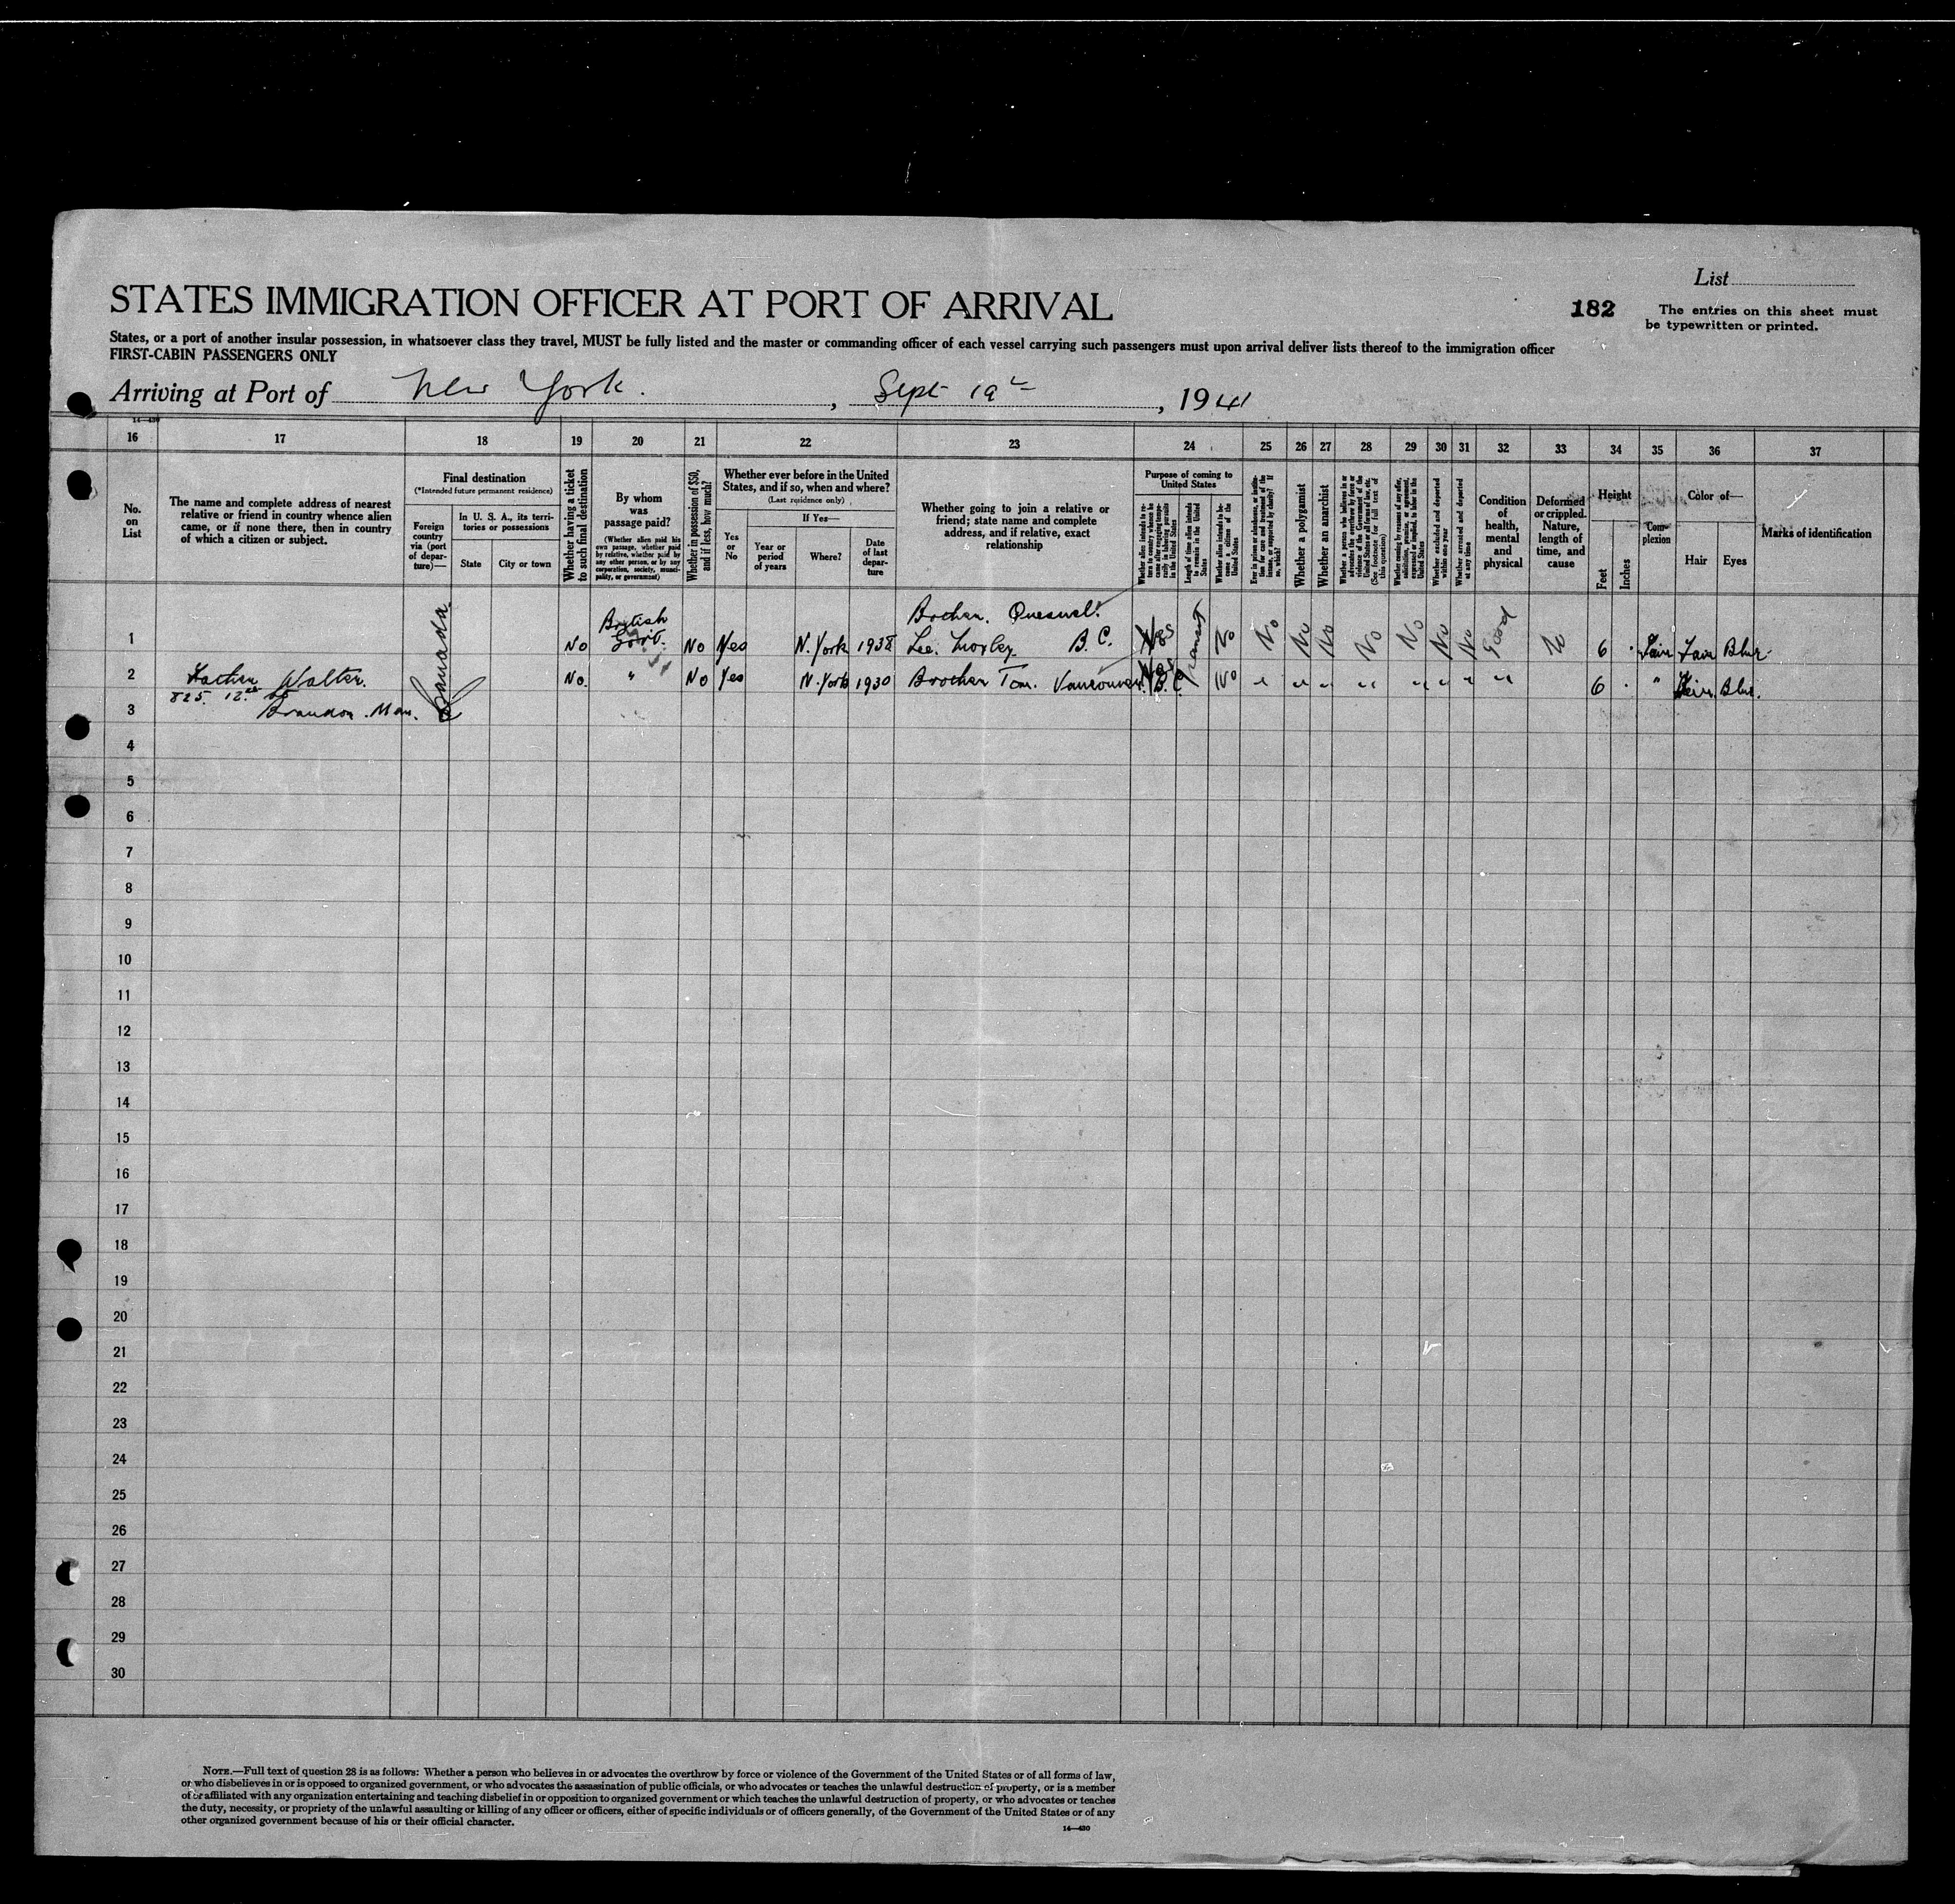 List
STATES IMMIGRATION OFFICER AT PORT OF ARRIVAL
182
The entries on this sheet must
be typewritten or printed.
States, or a port of another insular possession, in whatsoever class they travel, MUST be fully listed and the master or commanding officer of each vessel carrying such passengers must upon arrival deliver lists thereof to the immigration officer
FIRST-CABIN PASSENGERS ONLY
Arriving at Port of New York. , Sept 19 , 1941
14—430
16 17 18 19 20 21 22 23 24 25 26 27 28 29 30 31 32 33 34 35 36 37
No.
on
List
The name and complete address of nearest
relative or friend in country whence alien
came, or if none there, then in country
of which a citizen or subject.
Final destination
(*Intended future permanent residence)
Foreign
country
via (port
of depar-
ture)—
In U. S. A., its terri-
tories or possessions
State
City or town
Whether having a ticket
to such final destination
By whom
was
passage paid?
(Whether alien paid his
own passage, whether paid
by relative, whether paid by
any other person, or by any
corporation, society, munici-
pality, or government)
Whether in possession of $50,
and if less, how much?
Whether ever before in the United
States, and if so, when and where?
(Last residence only)
Yes
or
No
If Yes—
Year or
period
of years
Where?
Date
of last
depar-
ture
Whether going to join a relative or
friend; state name and complete
address, and if relative, exact
relationship
Purpose of coming to
United States
Whether alien intends to re-
turn to country whence he
came after engaging tempo-
rarily in laboring pursuits
in the United States
Length of time alien intends
to remain in the United
States
Whether alien intends to be-
come a citizen of the
United States
Ever in prison or almshouse, or institu-
tion for care and treatment of the
insane, or supported by charity? If
so, which?
Whether a polygamist
Whether an anarchist
Whether a person who believes in or
advocates the overthrow by force or
violence of the Government of the
United States or all forms of law, etc.
(See footnote for full text of
this question)
Whether coming by reason of any offer,
solicitation, promise, or agreement,
expressed or implied, to labor in the
United States
Whether excluded and deported
within one year
Whether arrested and deported
at any time
Condition
of
health,
mental
and
physical
Deformed
or crippled.
Nature,
length of
time, and
cause
Height
Feet
Inches
Com-
plexion
Color of—
Hair
Eyes
Marks of identification
1 Canada. No British Govt. No Yes N. York 1938 Brother. Quesnel. Lee. Morley B. C. Yes Transit No No No No No No No No Good No 6 Fair Fair Blue
2 Father Walter. No. " No Yes N. York 1930 Brother Tom. Vancouver B. C. Yes No " " " " " " " " 6 " Fair Blue.
825. 12th St
3 Brandon. Man.
4
5
6
7
8
9
10
11
12
13
14
15
16
17
18
19
20
21
22
23
24
25
26
27
28
29
30
NOTE.—Full text of question 28 is as follows: Whether a person who believes in or advocates the overthrow by force or violence of the Government of the United States or of all forms of law,
or who disbelieves in or is opposed to organized government, or who advocates the assassination of public officials, or who advocates or teaches the unlawful destruction of property, or is a member
of or affiliated with any organization entertaining and teaching disbelief in or opposition to organized government or which teaches the unlawful destruction of property, or who advocates or teaches
the duty, necessity, or propriety of the unlawful assaulting or killing of any officer or officers, either of specific individuals or of officers generally, of the Government of the United States or of any
other organized government because of his or their official character.
14—430